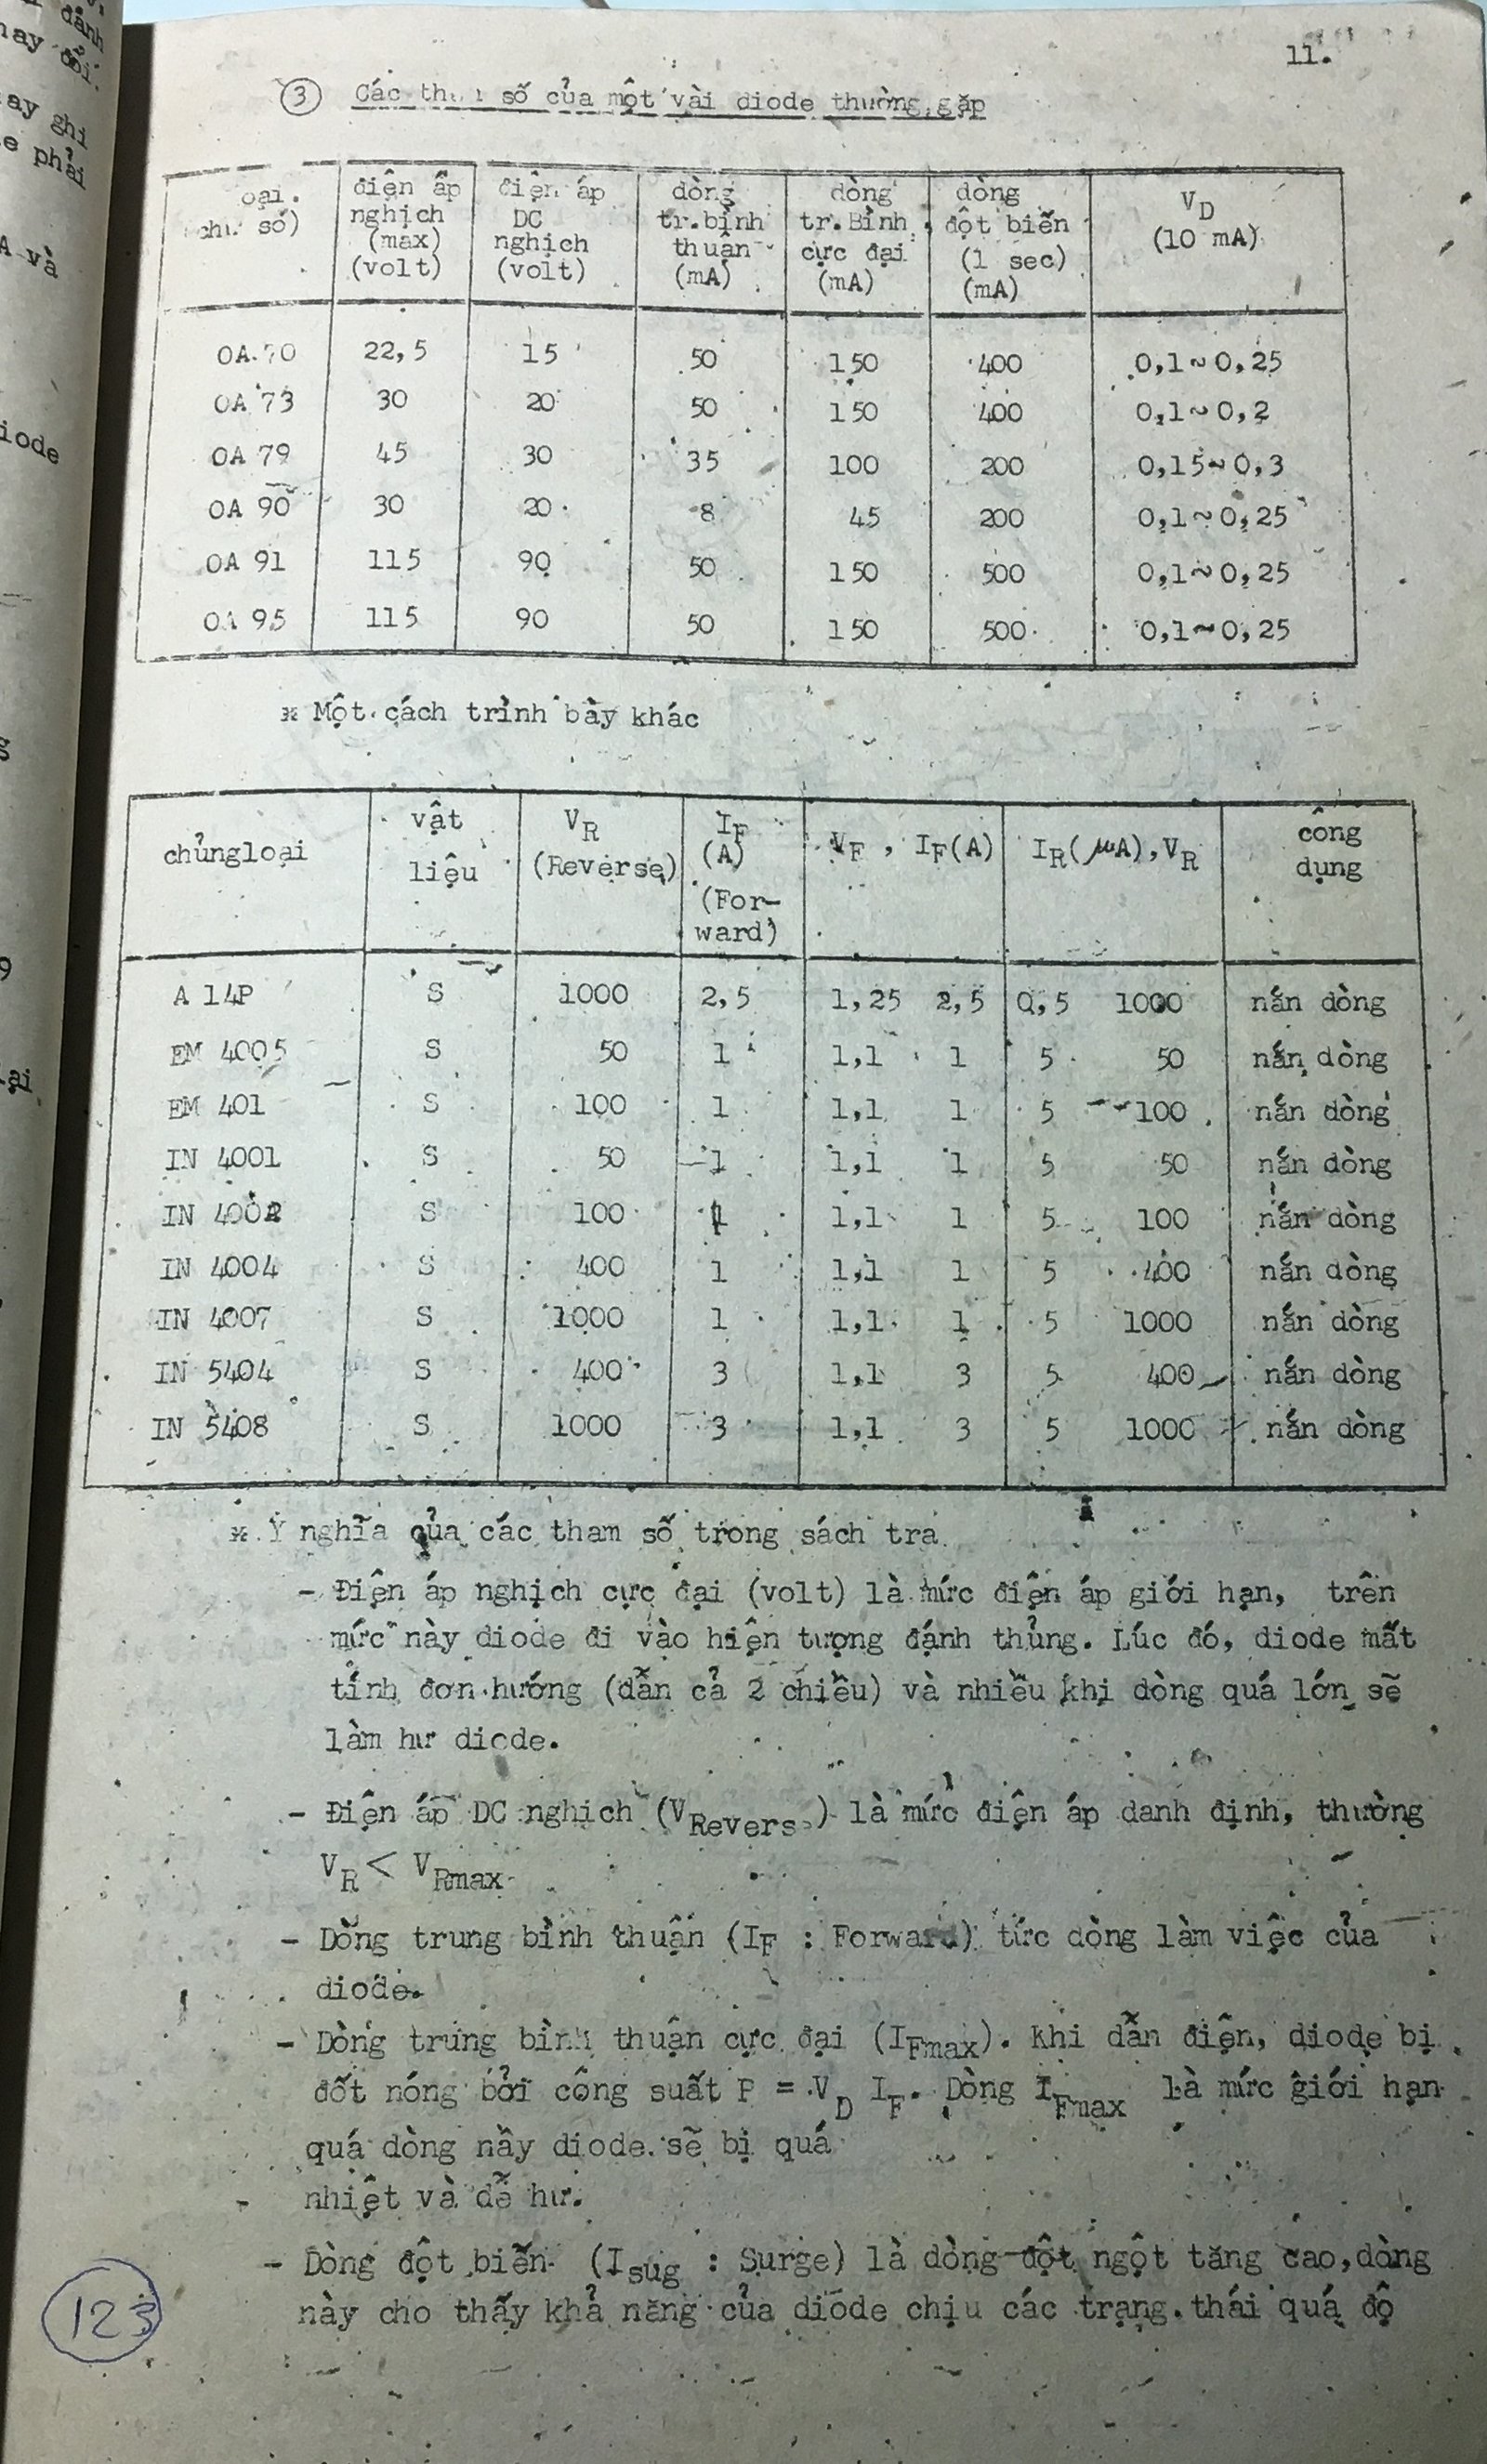 đảnh
đổi.
ay ghi
e phải
A và
iode
11.
3 Các số của một vài diode thường gặp
oại. điện ấp điện áp dòng dòng dòng V_D
số) nghịch DC tr.bình tr.Bình đột biến (10 mA)
(max) nghịch thuận cực đại (1 sec)
(volt) (volt) (mA) (mA) (mA)
OA 70 22,5 15 50 150 400 0,1~0,25
OA 73 30 20 50 150 400 0,1~0,2
OA 79 45 30 35 100 200 0,15~0,3
OA 90 30 20 8 45 200 0,1~0,25
OA 91 115 90 50 150 500 0,1~0,25
OA 95 115 90 50 150 500 0,1~0,25
* Một cách trình bày khác
chủngloại vật V_R I_F V_F , I_F(A) I_R(µA),V_R công
liệu (Reverse) (A) dụng
(For-
ward)
A 14P S 1000 2,5 1,25 2,5 0,5 1000 nắn dòng
EM 4005 S 50 1 1,1 1 5 50 nắn dòng
EM 401 S 100 1 1,1 1 5 100 nắn dòng
IN 4001 S 50 1 1,1 1 5 50 nắn dòng
IN 4002 S 100 1 1,1 1 5 100 nắn dòng
IN 4004 S 400 1 1,1 1 5 400 nắn dòng
IN 4007 S 1000 1 1,1 1 5 1000 nắn dòng
IN 5404 S 400 3 1,1 3 5 400 nắn dòng
IN 5408 S 1000 3 1,1 3 5 1000 nắn dòng
* Ý nghĩa của các tham số trong sách tra
- Điện áp nghịch cực đại (volt) là mức điện áp giới hạn, trên
mức này diode đi vào hiện tượng đánh thủng. Lúc đó, diode mất
tính đơn hướng (dẫn cả 2 chiều) và nhiều khi dòng quá lớn sẽ
làm hư diode.
- Điện áp DC nghịch (V_Revers ) là mức điện áp danh định, thường
V_R < V_Rmax
- Dòng trung bình thuận (I_F : Forward) tức dòng làm việc của
diode.
- Dòng trung bình thuận cực đại (I_Fmax). khi dẫn điện, diode bị
đốt nóng bởi công suất P = V_D I_F. Dòng I_Fmax là mức giới hạn
quá dòng nầy diode sẽ bị quá
nhiệt và dễ hư.
- Dòng đột biến (I_sug : Surge) là dòng đột ngột tăng cao,dòng
này cho thấy khả năng của diode chịu các trạng thái quá độ
123